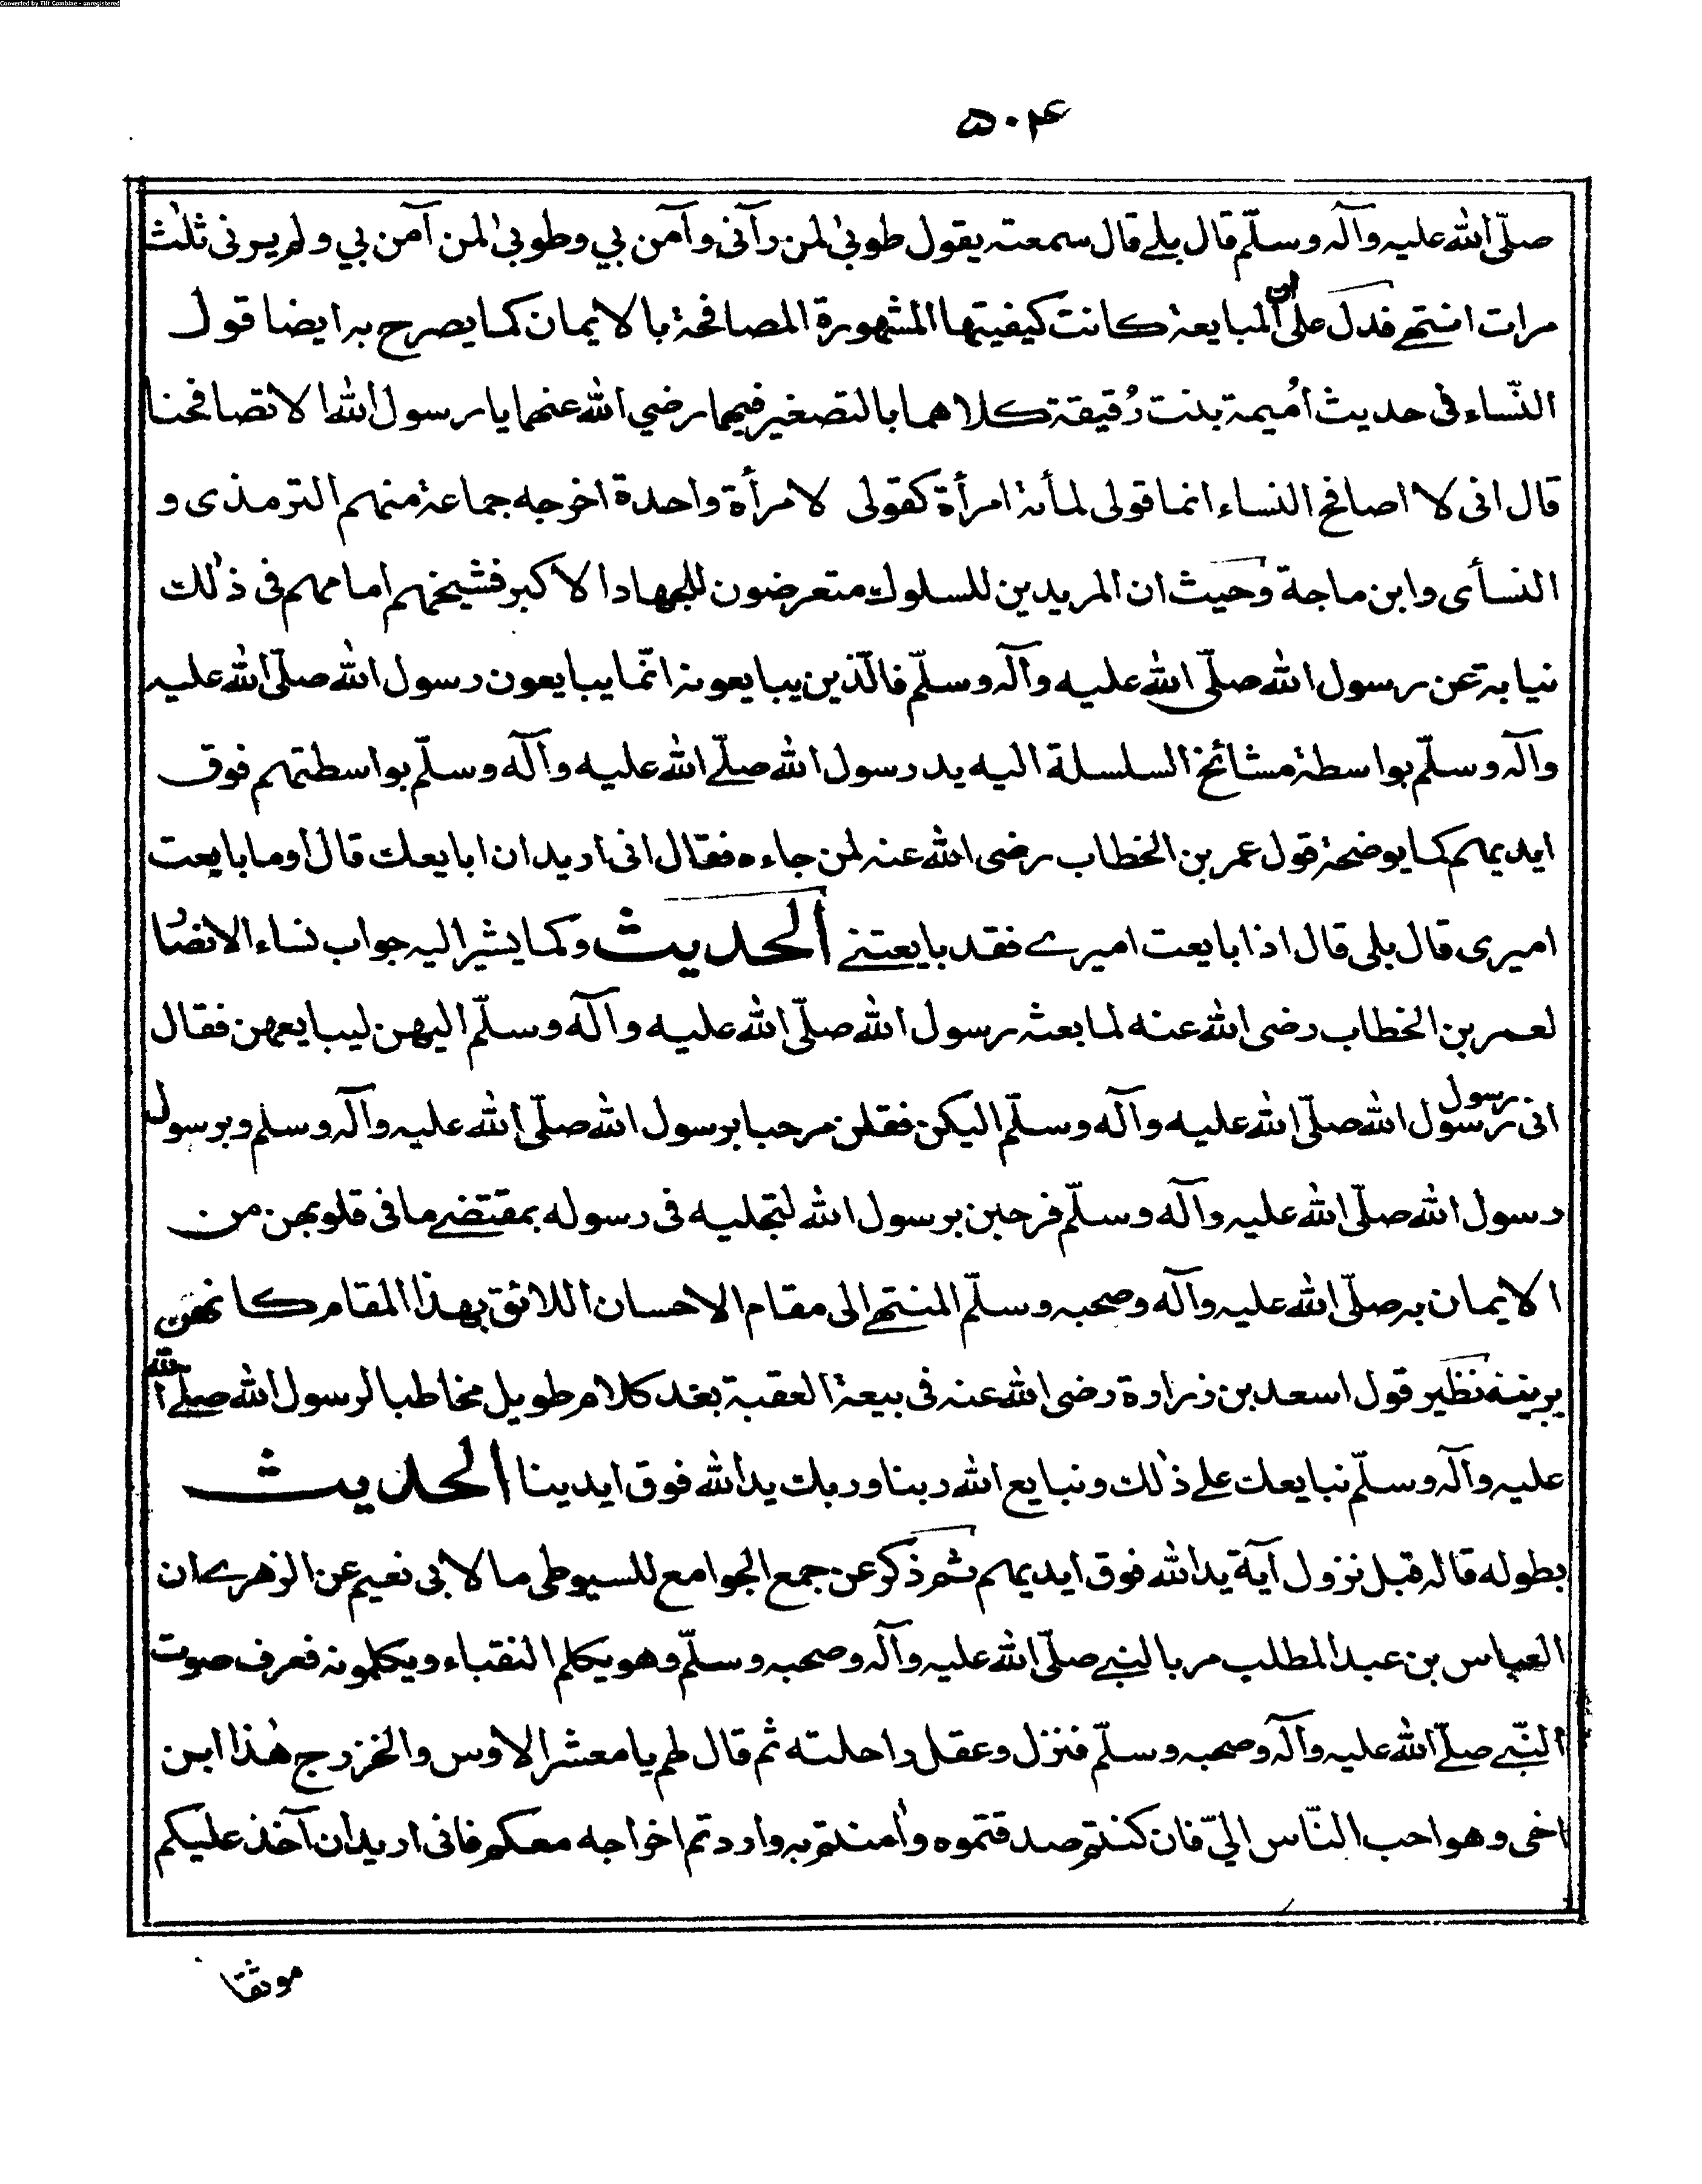 Converted by Tiff Combine - unregistered
۵۰۴
صلّى الله عليه وآله وسلّم قال بلے قال سمعته يقول طوبىٰ لمن رآنى وآمن بي وطوبىٰ لمن آمن بي ولم يرنى ثلٰث
مرات انتهے فدل على ان المبايعة كانت كيفيتها المشهورة المصافحة بالايمان كما يصرح به ايضا قول
النّساء فى حديث اُميمة بنت رُقيقة كلاهما بالتصغير فيهما رضي الله عنهما يا رسول الله الا تصافحنا
قال انى لا اصافح النساء انما قولى لمأئة امرأة كقولى لامرأة واحدة اخرجه جماعة منهم الترمذى و
النسأى وابن ماجة وحيث ان المريدين للسلوك متعرضون للجهاد الاكبر فشيخهم امامهم فى ذٰلك
نيابة عن رسول الله صلّى الله عليه وآله وسلّم فالّذين يبايعونه انّما يبايعون رسول الله صلّى الله عليه
وآله وسلّم بواسطة مشائخ السلسلة اليه يد رسول الله صلّے الله عليه وآله وسلّم بواسطتهم فوق
ايديهم كما يوضحه قول عمر بن الخطاب رضى الله عنه لمن جاءه فقال انى اريد ان ابايعك قال أوما بايعت
اميرى قال بلى قال اذا بايعت اميرے فقد بايعتنے الحديث وكما يشير اليه جواب نساء الانصار
لعمر بن الخطاب رضى الله عنه لما بعثه رسول الله صلّى الله عليه وآله وسلّم اليهن ليبايعهن فقال
انى رسول رسول الله صلّى الله عليه وآله وسلّم اليكن فقلن مرحبا برسول الله صلّى الله عليه وآله وسلم وبرسول
رسول الله صلّى الله عليه وآله وسلّم فرحبن برسول الله لتجليه فى رسوله بمقتضے ما فى قلوبهن من
الايمان به صلّى الله عليه وآله وصحبه وسلّم المنتهے الى مقام الاحسان اللائق بهذا المقام كانهن
يرينه نظير قول اسعد بن زرارة رضى الله عنه فى بيعة العقبة بعد كلام طويل مخاطبا لرسول الله صلے الله
عليه وآله وسلّم نبايعك علے ذٰلك ونبايع الله ربنا وربك يد الله فوق ايدينا الحديث
بطوله قاله قبل نزول آية يد الله فوق ايديهم ثم ذكر عن جمع الجوامع للسيوطى ما لابى نعيم عن الزهرے ان
العباس بن عبد المطلب مر بالنبے صلّى الله عليه وآله وصحبه وسلّم وهو يكلم النقباء ويكلمونه فعرف صوت
النّبے صلّے الله عليه وآله وصحبه وسلّم فنزل وعقل راحلته ثم قال لهم يا معشر الاوس والخزرج هٰذا ابن
اخى وهو احب النّاس اليّ فان كنتم صدقتموه وأمنتم به واردتم اخراجه معكم فانى اريد ان آخذ عليكم
موثقا